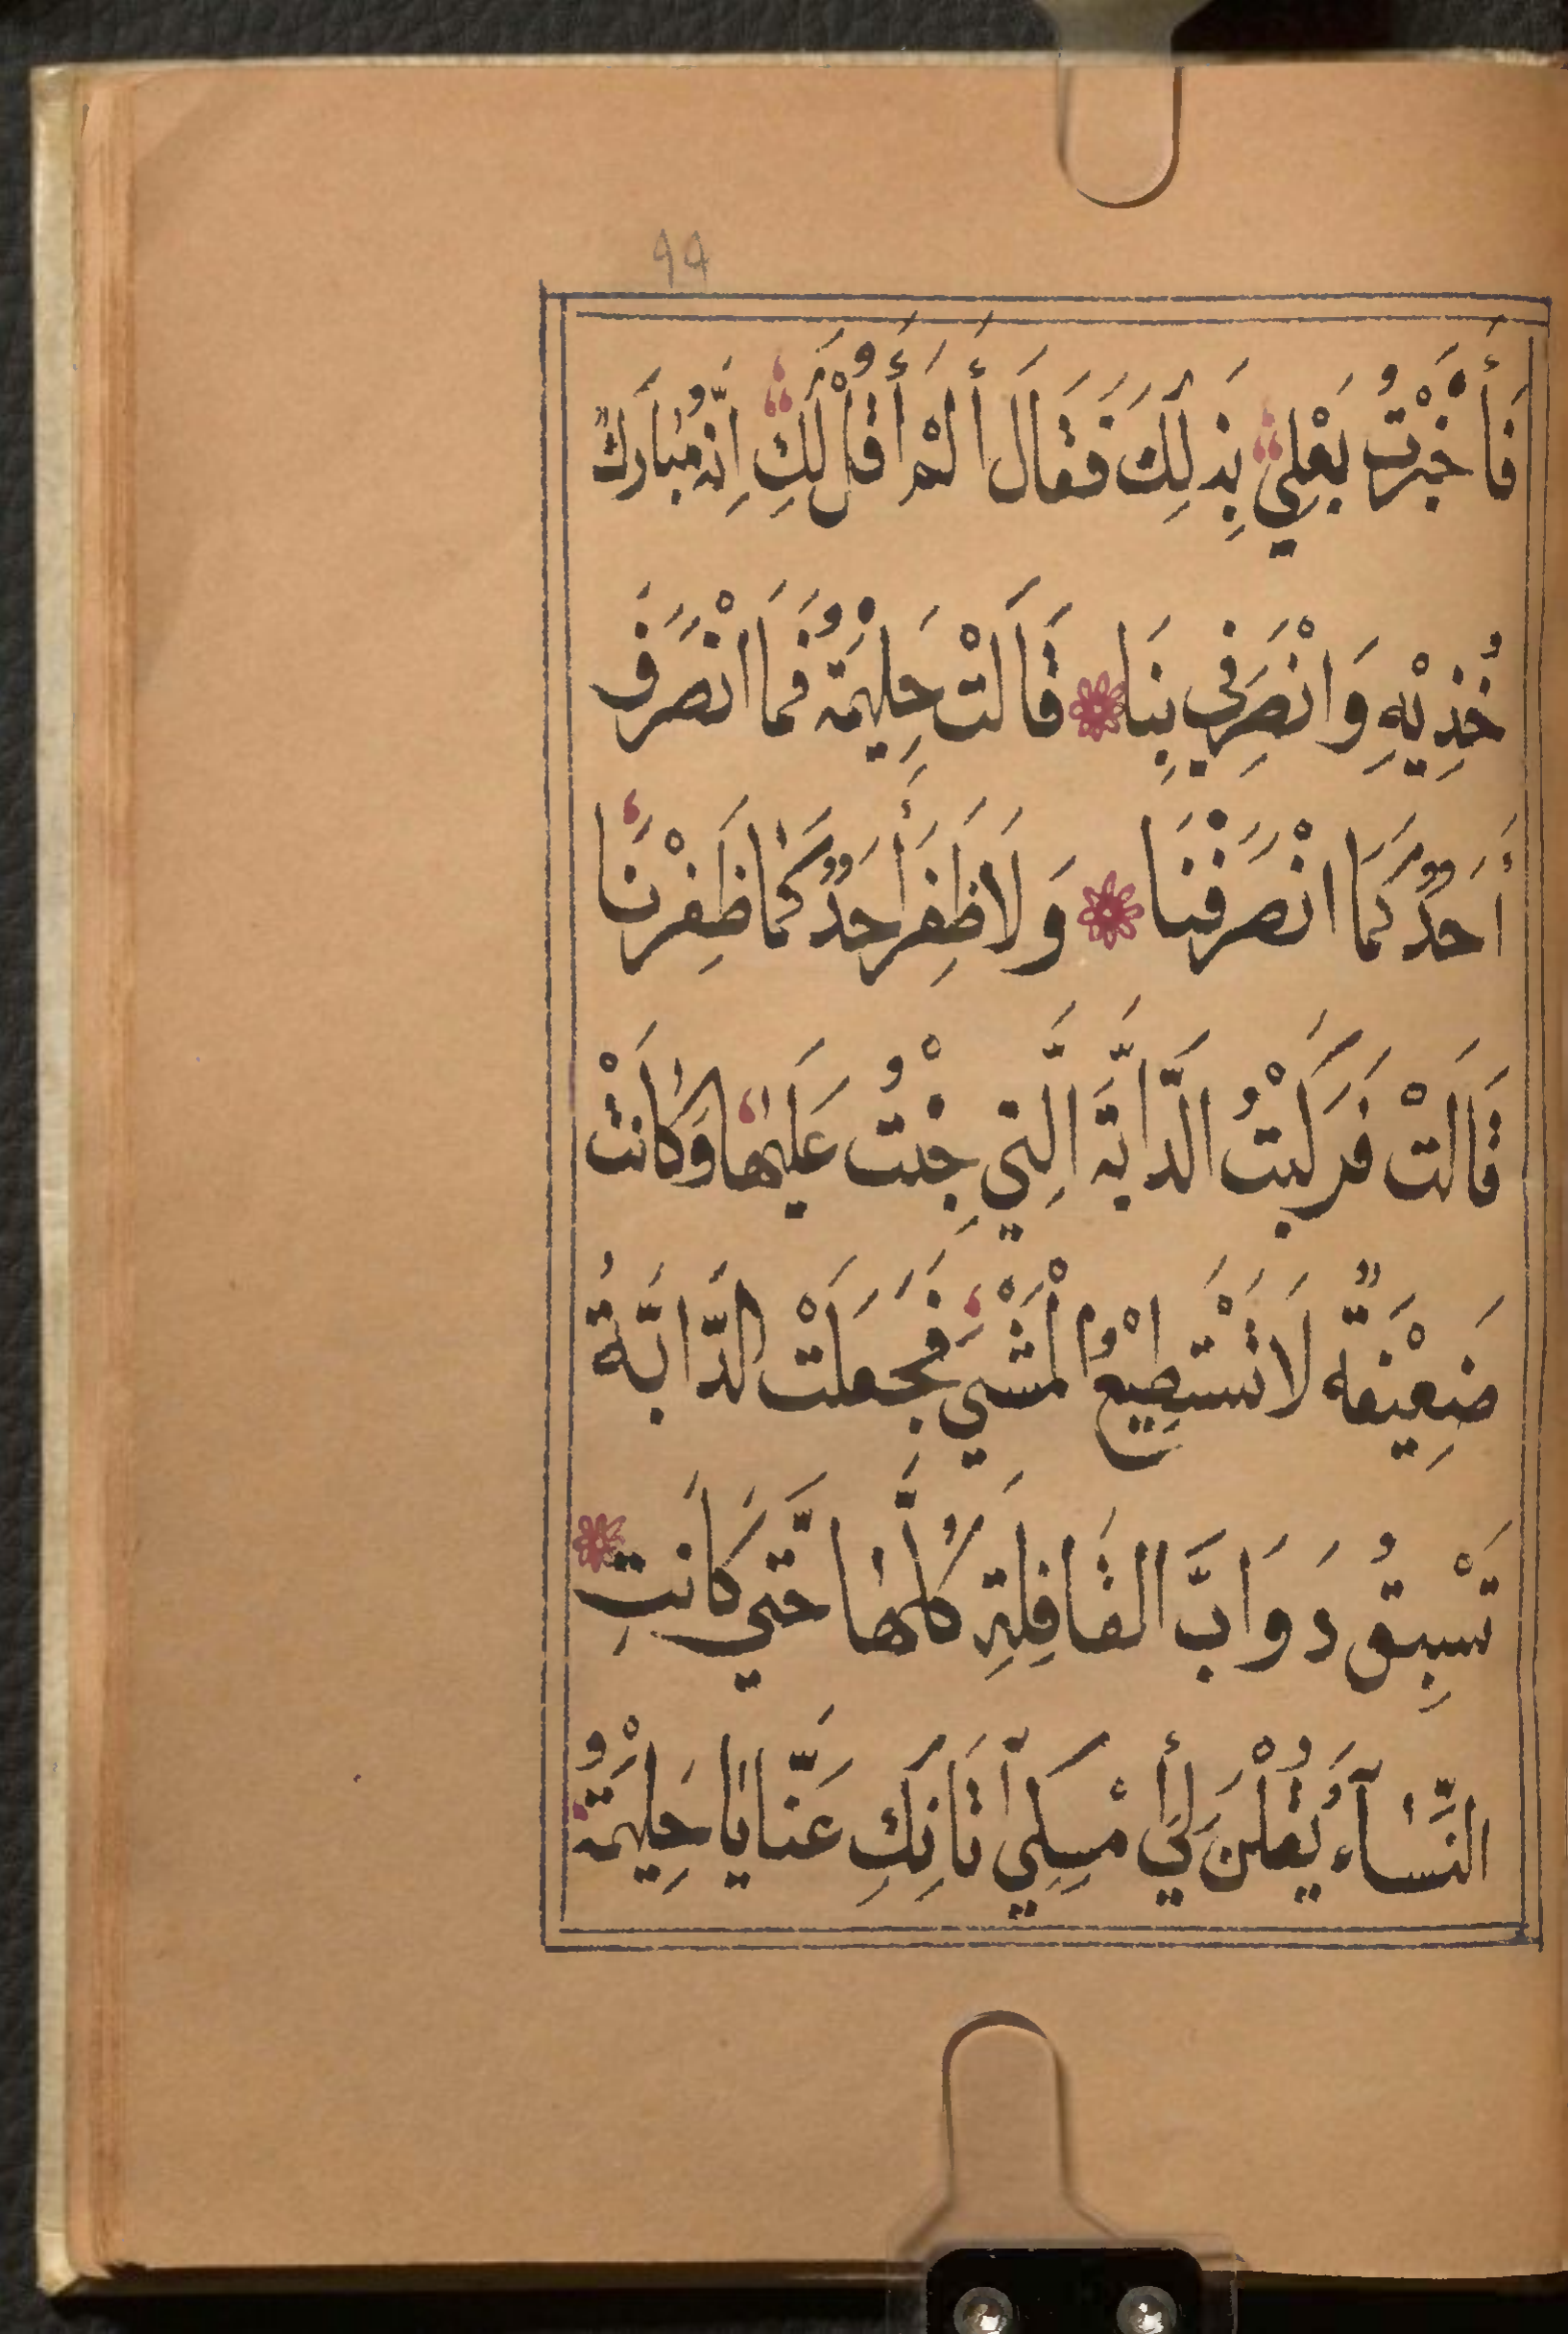 99
فَأَخْبَرْتُ بَعْلِي بِذَلِكَ فَقَالَ أَلَمْ أَقُلْ لَكِ اِنَّهُ مُبَارَكٌ
خُذِيْهِ وَانْصَرِفِي بِنَا قَالَتْ حَلِيْمَةُ فَمَا انْصَرَفَ
أَحَدٌ كَمَا انْصَرَفْنَا وَلَا ظَفِرَ أَحَدٌ كَمَا ظَفِرْنَا
قَالَتْ فَرَكِبْتُ الدَّابَّةَ الَّتِي جِئْتُ عَلَيْهَا وَكَانَتْ
ضَعِيْفَةً لَا تَسْتَطِيْعُ الْمَشْيَ فَجَعَلَتْ الدَّابَّةُ
تَسْبِقُ دَوَابَّ القَافِلَةِ كُلَّهَا حَتَّي كَانَتِ
النِّسَآءُ يَقُلْنَ لِي أَمْسِكِي اَتَانَكِ عَنَّا يَا حَلِيْمَةُ